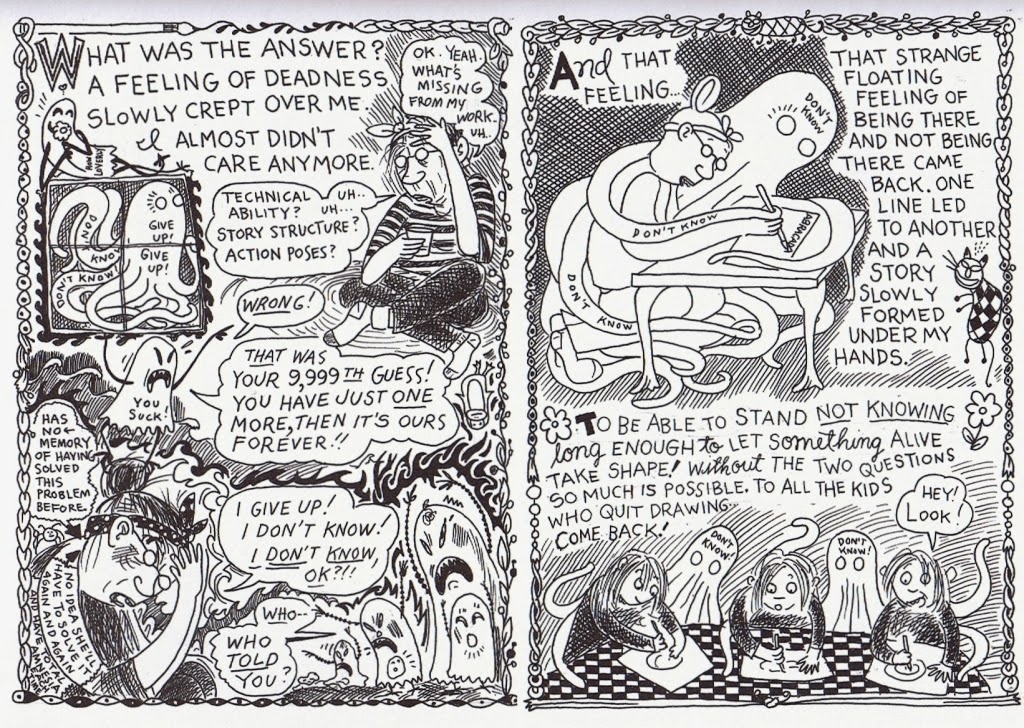 WHAT WAS THE ANSWER?
A FEELING OF DEADNESS
SLOWLY CREPT OVER ME.
I ALMOST DIDN'T
CARE ANYMORE.
OK. YEAH.
WHAT'S
MISSING
FROM MY
WORK.
UH..
TECHNICAL UH..
ABILITY? UH...
STORY STRUCTURE?
ACTION POSES?
GIVE
UP!
GIVE
UP!
DON'T
KNOW
DON'T KNOW!
WRONG!
THAT WAS
YOUR 9,999TH GUESS!
YOU HAVE JUST ONE
MORE, THEN IT'S OURS
FOREVER!!
YOU
SUCK!
HAS
NO
MEMORY
OF HAVING
SOLVED
THIS
PROBLEM
BEFORE.
I GIVE UP!
I DON'T KNOW!
I DON'T KNOW,
OK?!!
NO IDEA SHE'LL
HAVE TO SOLVE IT
AGAIN AND AGAIN
WHO--
WHO
TOLD
YOU?
And THAT
FEELING...
THAT STRANGE
FLOATING
FEELING OF
BEING THERE
AND NOT BEING
THERE CAME
BACK. ONE
LINE LED
TO ANOTHER
AND A
STORY
SLOWLY
FORMED
UNDER MY
HANDS.
DON'T
KNOW
DON'T KNOW
DON'T KNOW
TO BE ABLE TO STAND NOT KNOWING
long ENOUGH to LET Something ALIVE
TAKE SHAPE! Without THE TWO QUESTIONS
SO MUCH IS POSSIBLE. TO ALL THE KIDS
WHO QUIT DRAWING...
COME BACK!
HEY!
LOOK!
DON'T
KNOW!
DON'T
KNOW!